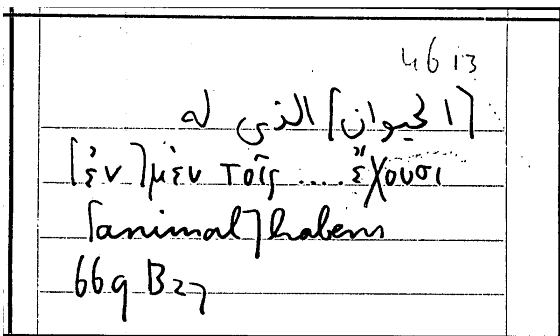 4613
[الحيوان] الذى له
[ἐν] μὲν τοῖς .... ἔχουσι
[animal] habens
669 B27